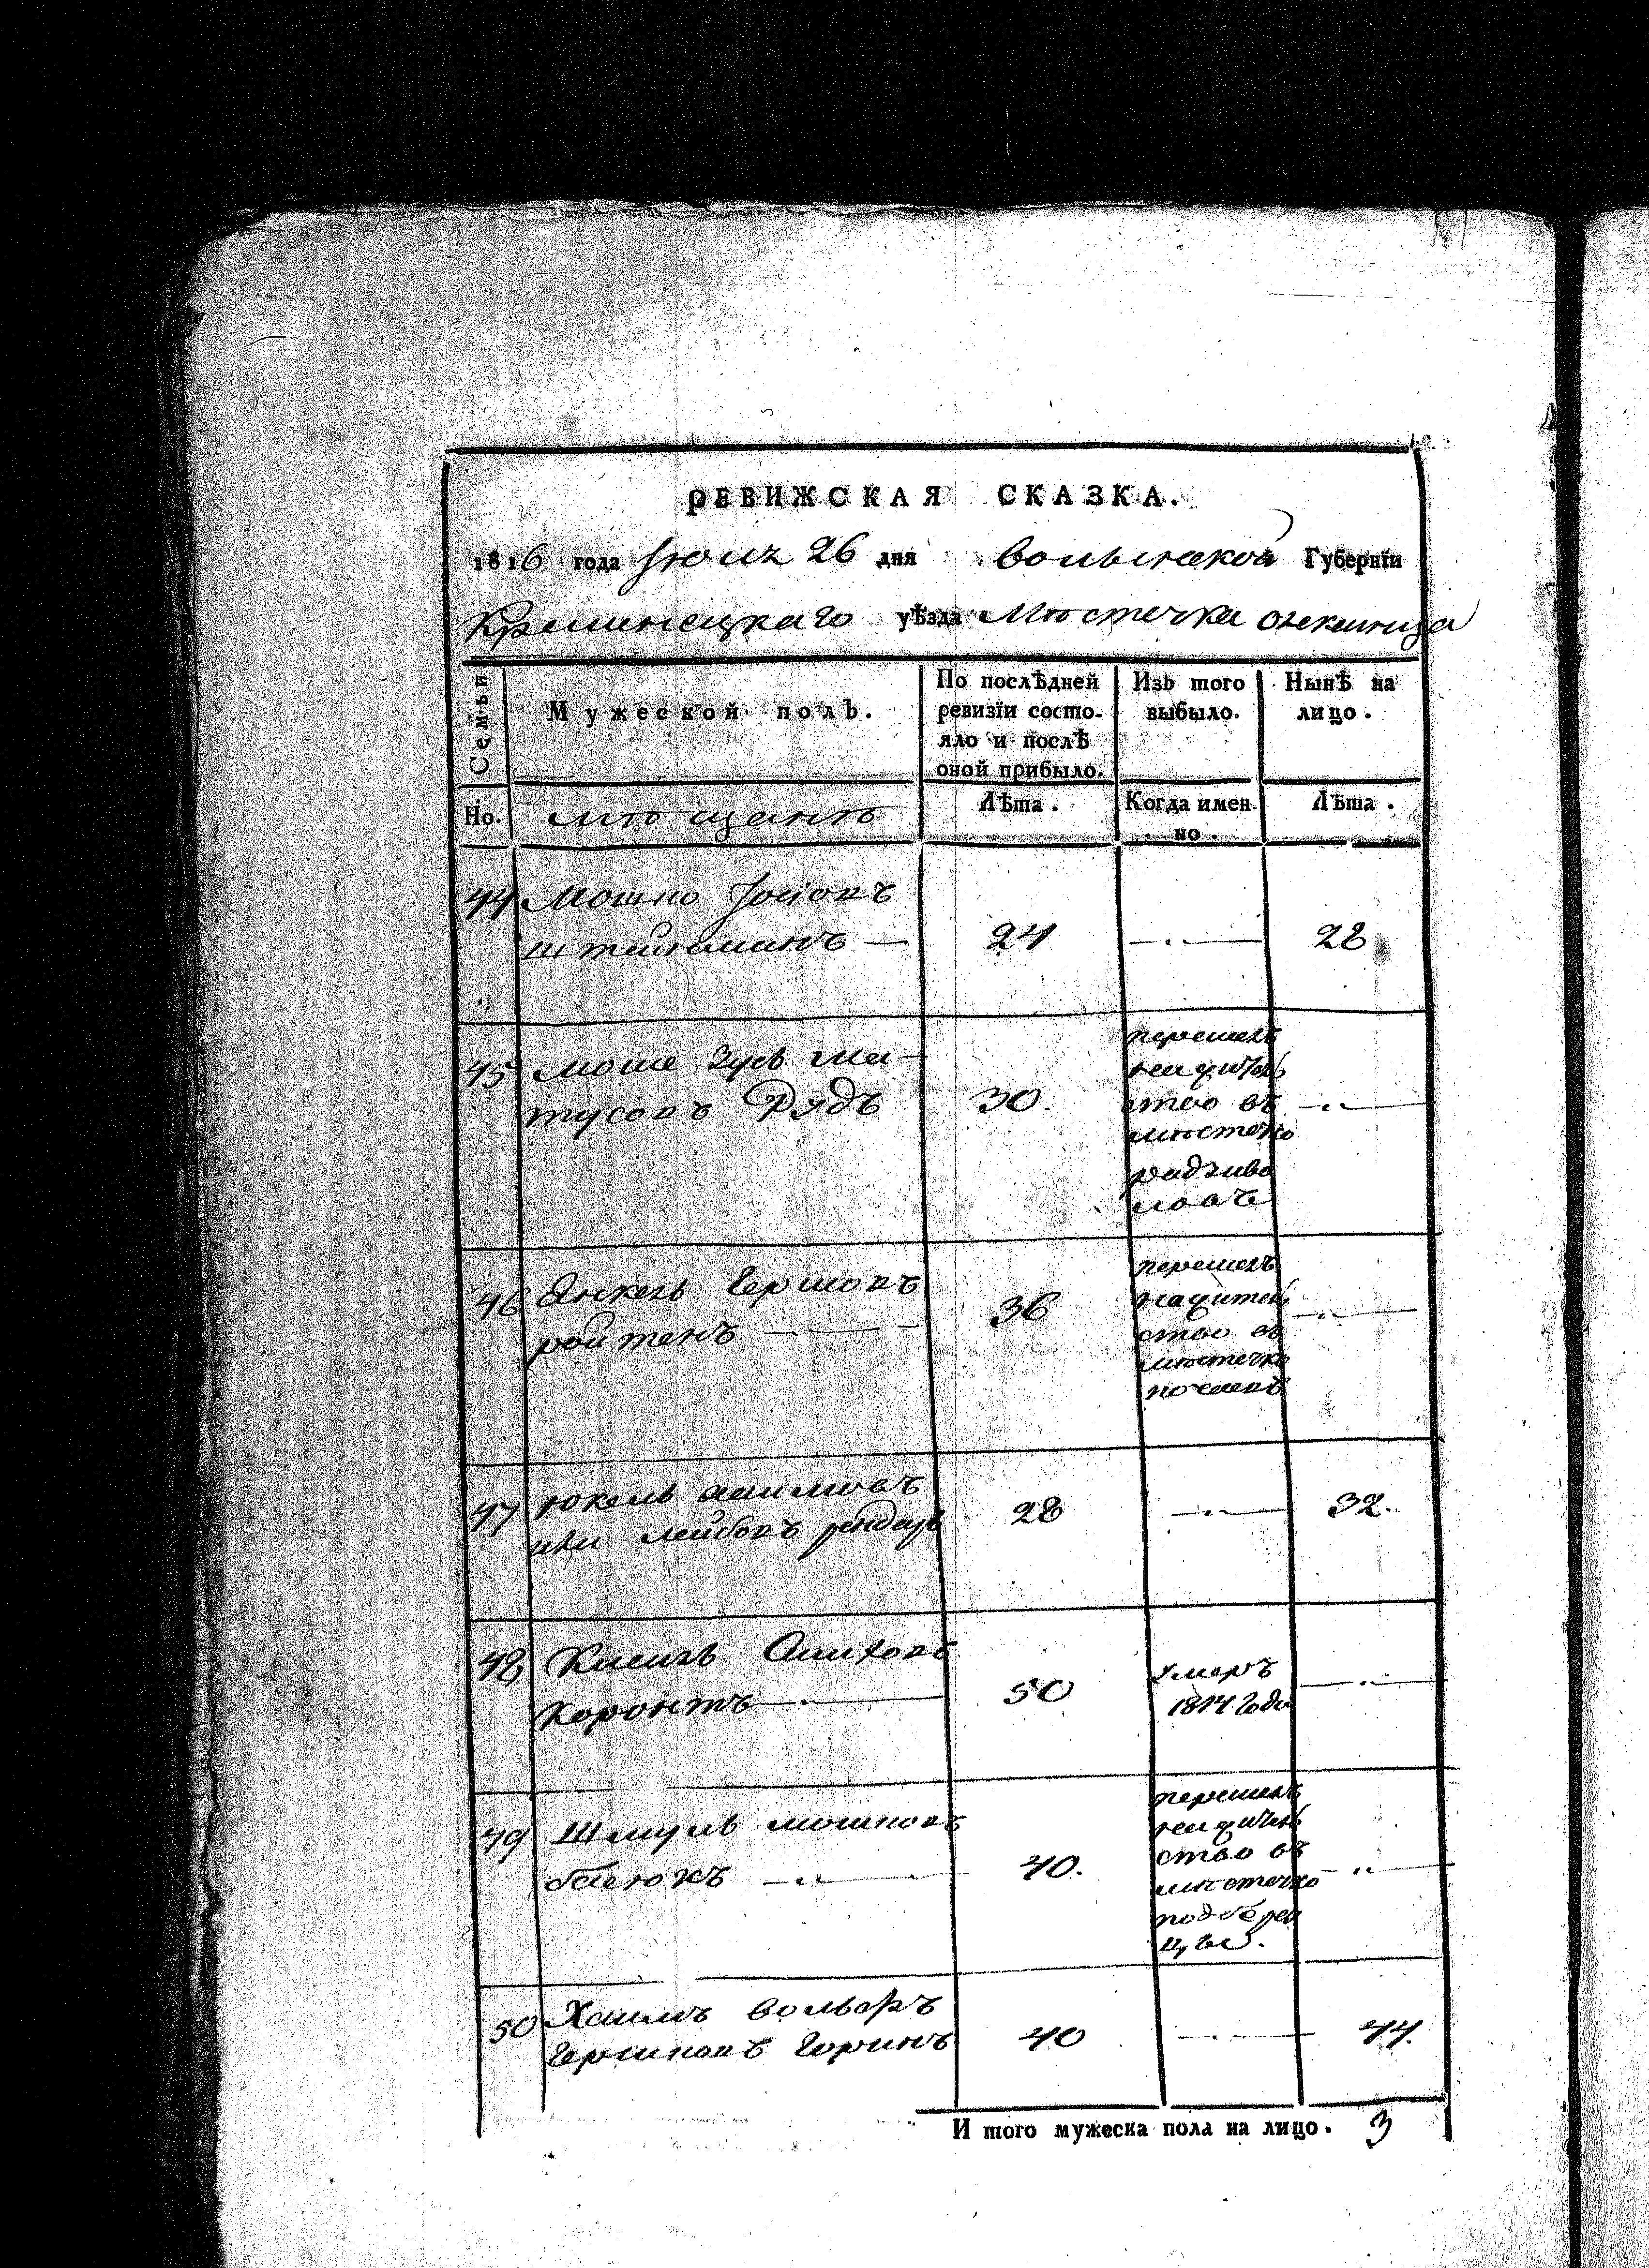 РЕВИЖСКАЯ СКАЗКА.
1816 года Июля 26 дня Волынской Губерніи
Кременецкаго уѣзда Мѣстечка
Семьи
Мужеской полъ.
По послѣдней ревизіи состояло и послѣ оной прибыло.
Изъ того выбыло.
Нынѣ на лицо.
Но.
мѣщанъ
Лѣта.
Когда имен но.
Лѣта.
44 Мошко Іосіовъ
штейнманъ — 24 —..— 28
45 Моше Зусь Ма-
тусовъ Рудъ 30. —..—
перешелъ
на жител
ство въ
мѣстечко
радзиви
ловъ
46 Янкель Гершовъ
ройтенъ —..— 36 —..—
перешелъ
на жител
ство въ
мѣстечко
47 Юкель хаимовъ
или лейбовъ 28 —..— 32.
48
50 —..—
умеръ
1814 Года
49 Шмуль мошковъ
—..— 40. —..—
перешелъ
на жител
ство въ
мѣстечко
подбере
цы.
50 Хаимъ вольфъ
Гершковъ Горинъ 40 —..— 44.
И того мужеска пола на лицо. 3